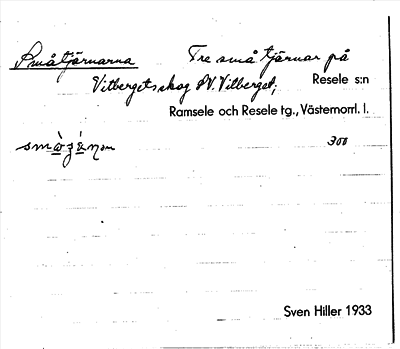 Småtjärnarna Tre små tjärnar på
Vitbergets skog SV. Vitberget; Resele s:n
Ramsele och Resele tg., Västernorrl. l.
300
Sven Hiller 1933